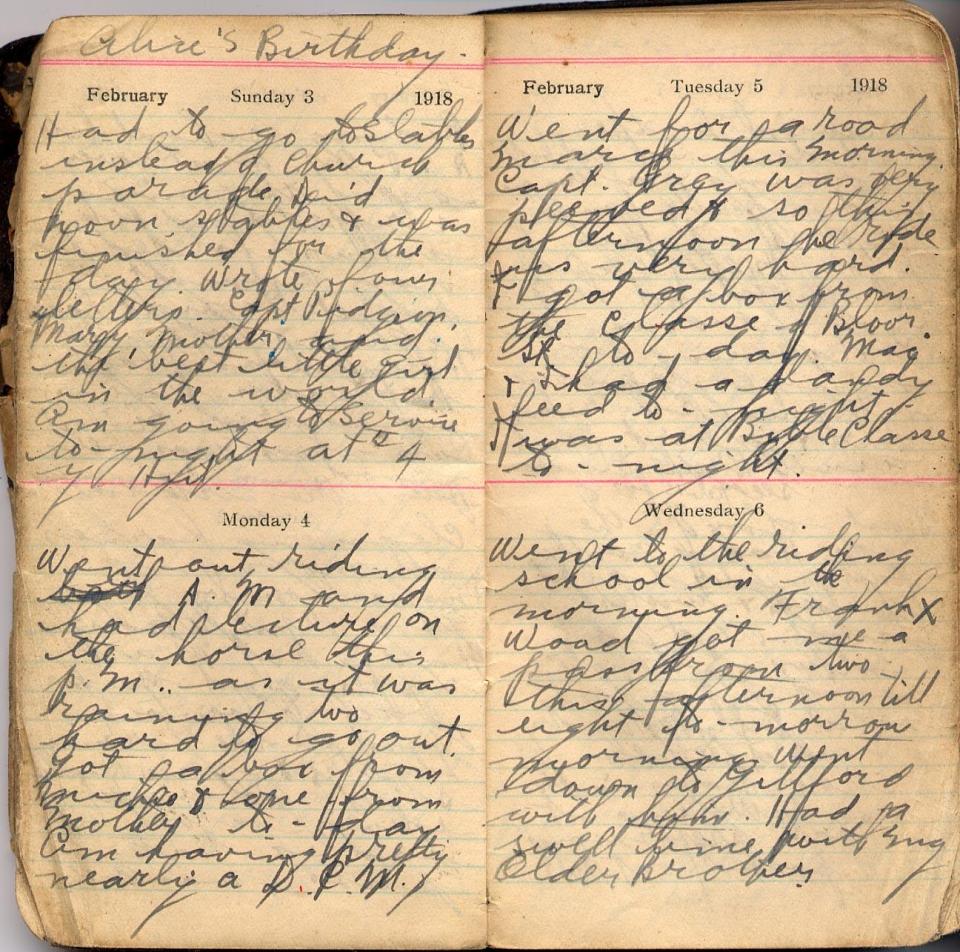 Alice's Birthday.
February Sunday 3 1918
Had to go to Stables
instead of Church
parade. Did
noon stables & was
finished for the
day. Wrote four
letters. Capt Pidgeon,
Mary, Mother and
the best little girl
in the world.
Am going to Service
to-night at 4
Y Hut.
Monday 4
Went out riding
A. M and
had lecture on
the horse this
p.m.. as it was
raining too
hard to go out.
Got a box from
& one from
Mother to-day
Am having pretty
nearly a D.C.M.
February Tuesday 5 1918
Went for a road
march this morning.
Capt. Grey was very
peeved & so this
afternoon the ride
was very hard.
I got a box from
the Classe of Bloor
St to-day. Mag
& I had a dandy
feed to-night.
I was at Bible Classe
to-night.
Wednesday 6
Went to the riding
school in the
morning. Frank X
Wood got me a
pass from two
this afternoon till
eight to-morrow
morning. Went
down to Gillford
with him. Had a
swell time with my
Elder Brother